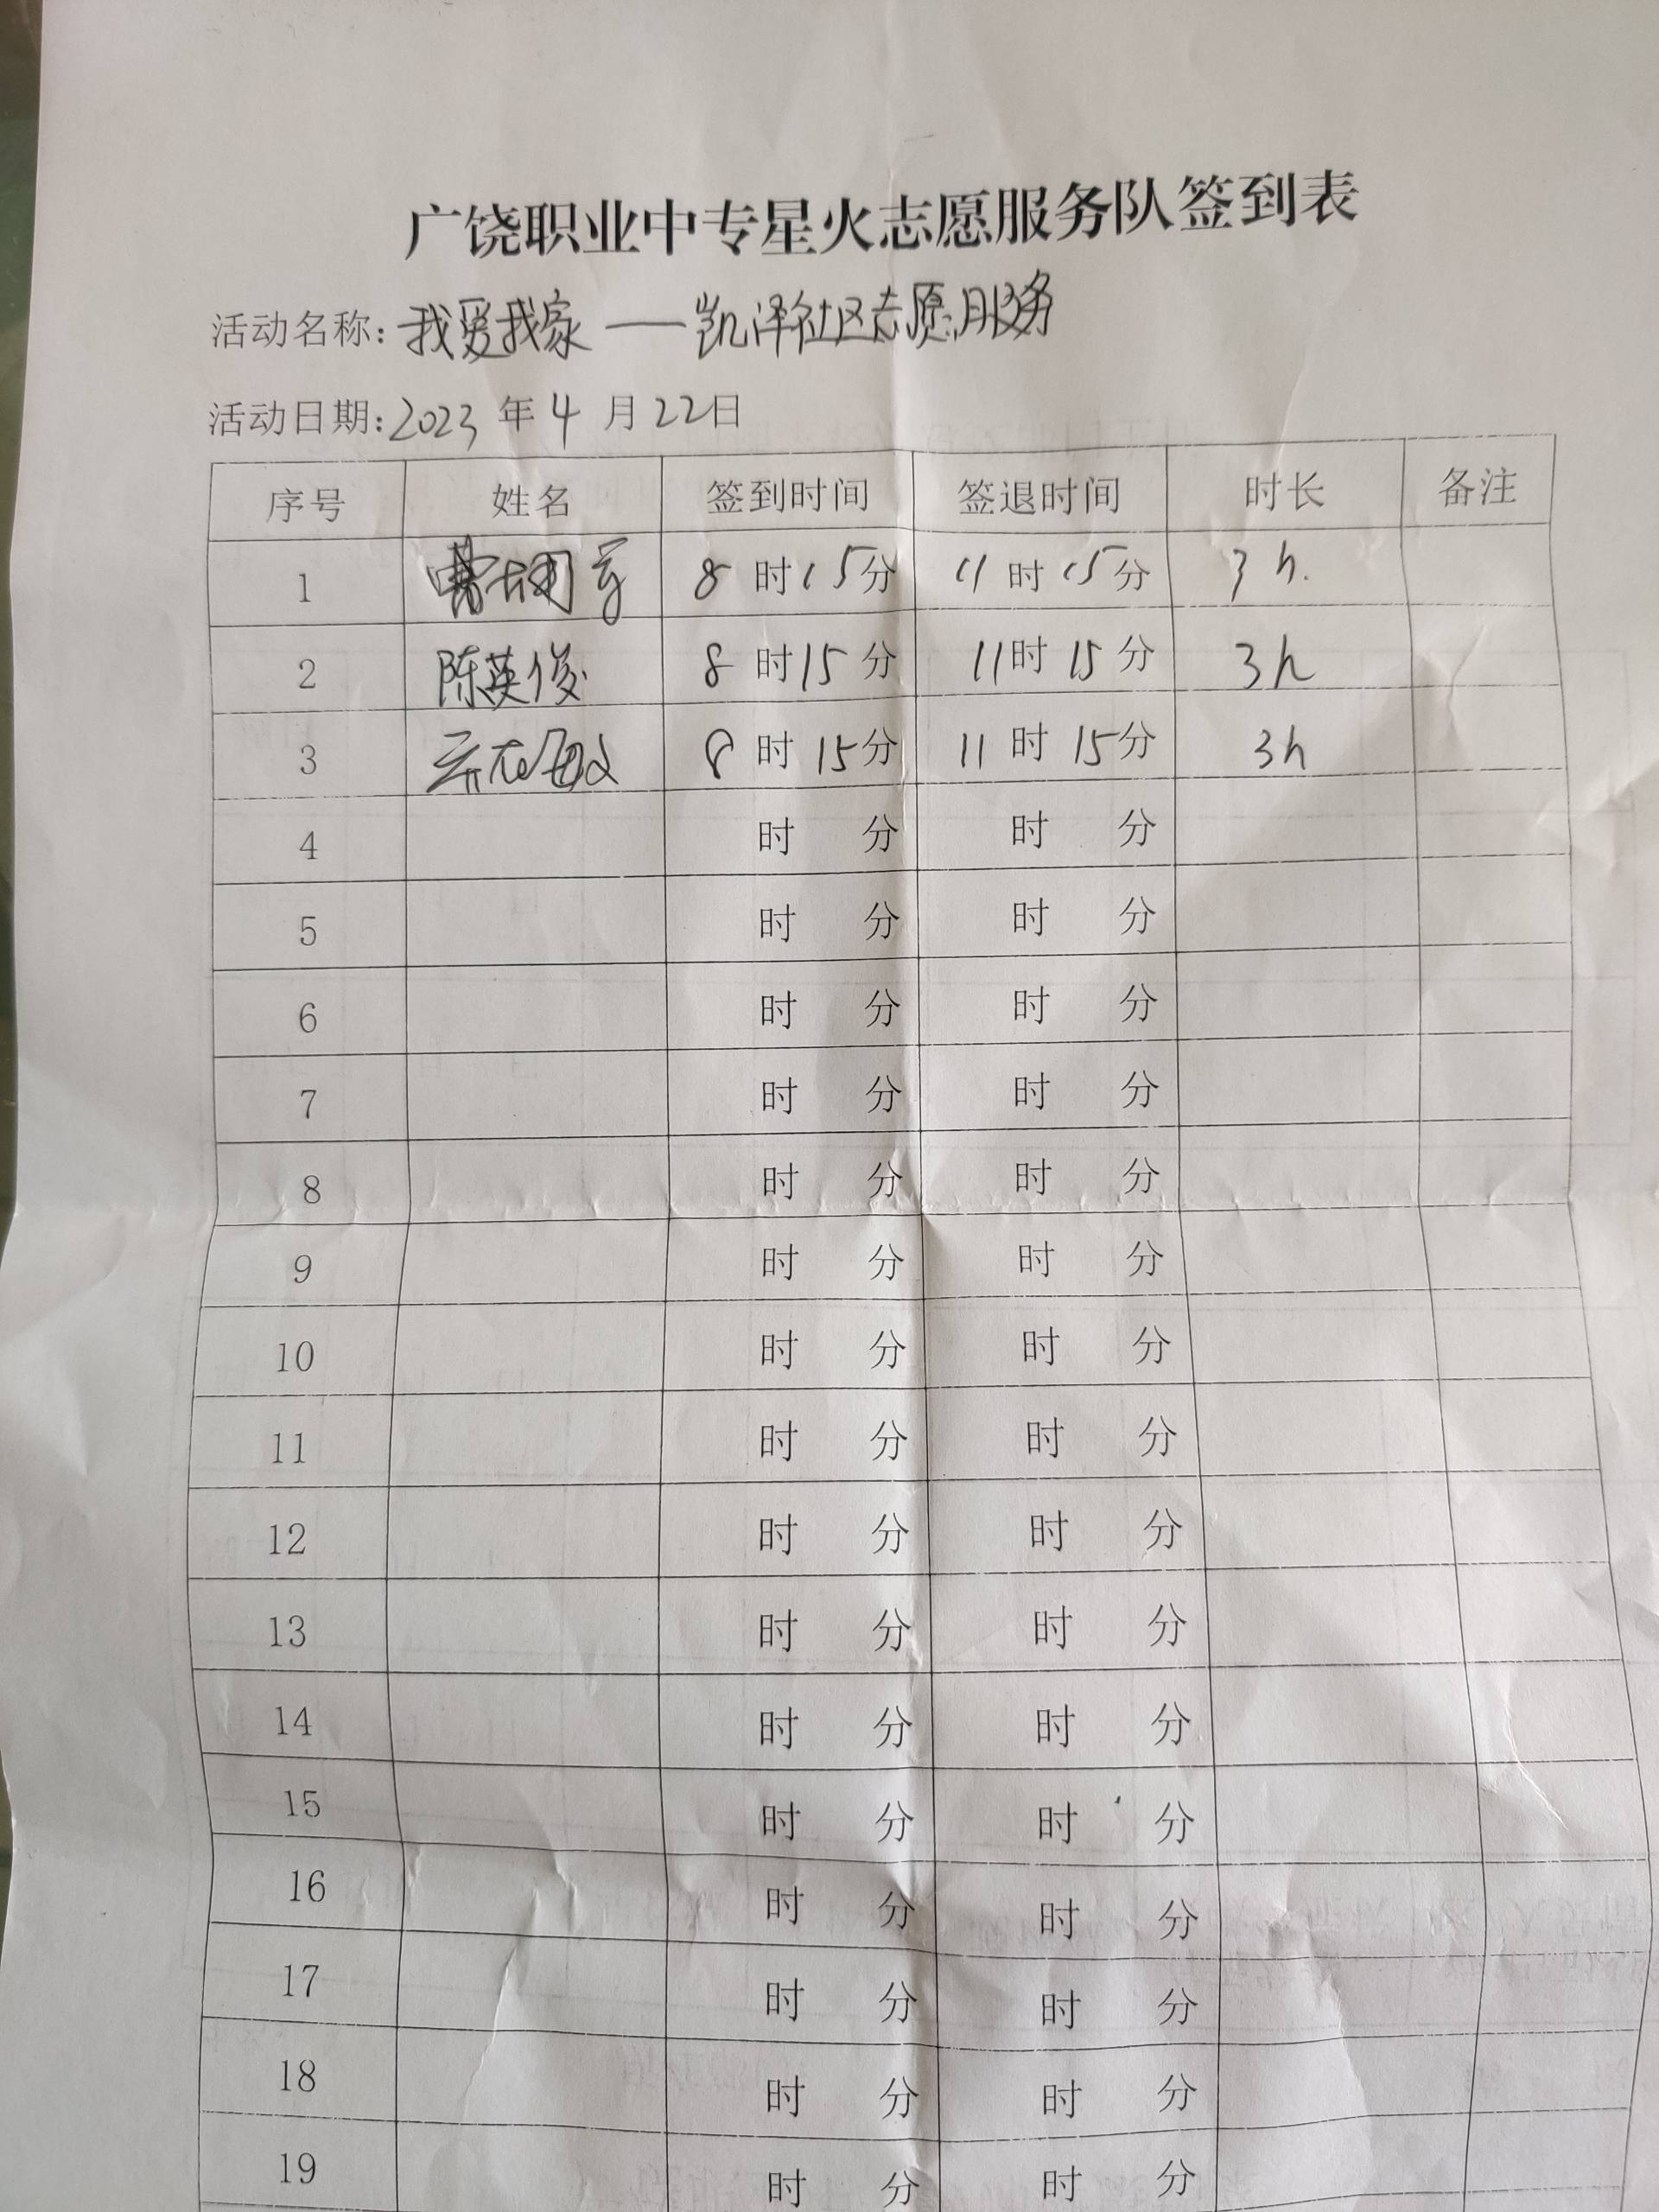 广饶职业中专星火志愿服务队签到表
活动名称:我爱我家——凯泽社区志愿服务
活动日期:2023年4月22日
序号 姓名 签到时间 签退时间 时长 备注
1 8时15分 11时15分 3h.
2 陈英俊 8时15分 11时15分 3h
3 8时15分 11时15分 3h
4 时 分 时 分
5 时 分 时 分
6 时 分 时 分
7 时 分 时 分
8 时 分 时 分
9 时 分 时 分
10 时 分 时 分
11 时 分 时 分
12 时 分 时 分
13 时 分 时 分
14 时 分 时 分
15 时 分 时 分
16 时 分 时 分
17 时 分 时 分
18 时 分 时 分
19 时 分 时 分